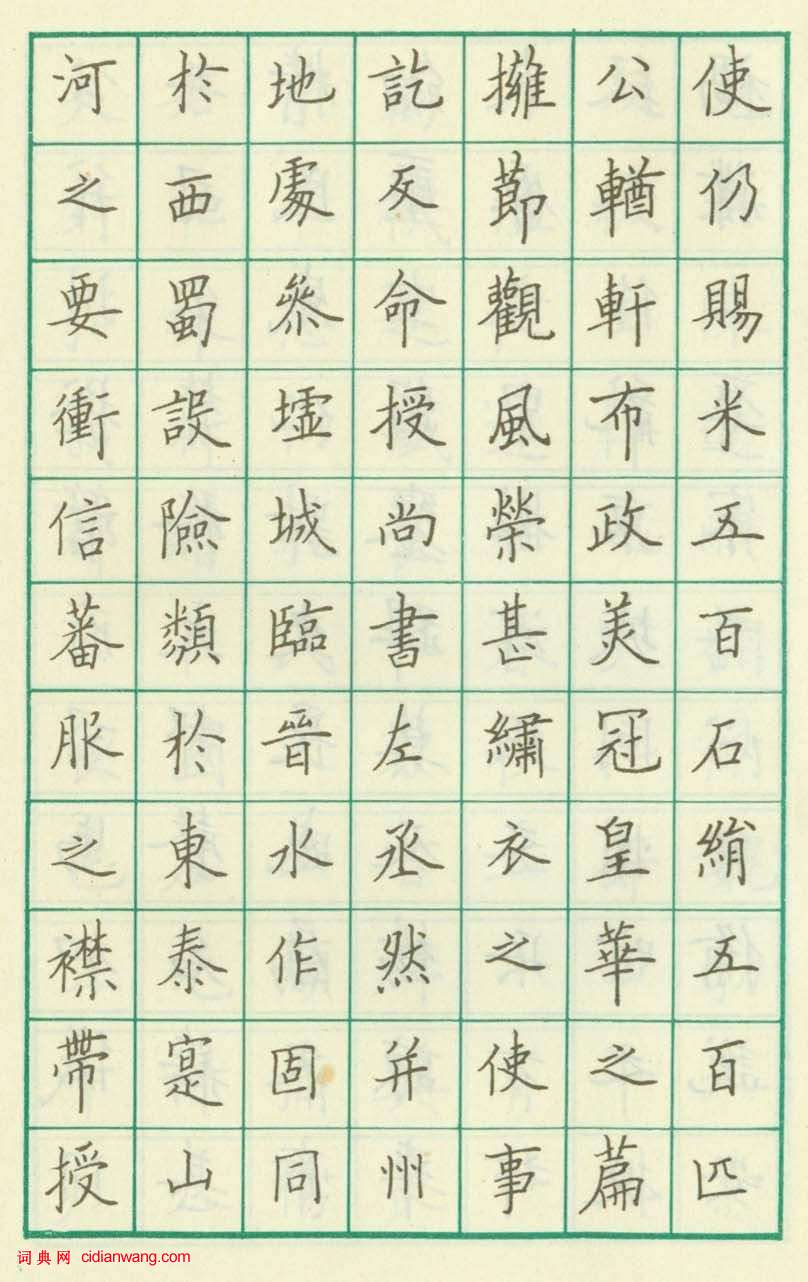 使仍賜米五百石絹五百匹
公輶軒布政美冠皇華之篇
擁節觀風榮甚繡衣之使事
訖反命授尚書左丞然并州
地處參墟城臨晉水作固同
於西蜀設險類於東泰寔山
河之要衝信蕃服之襟帶授
词典网 cidianwang.com